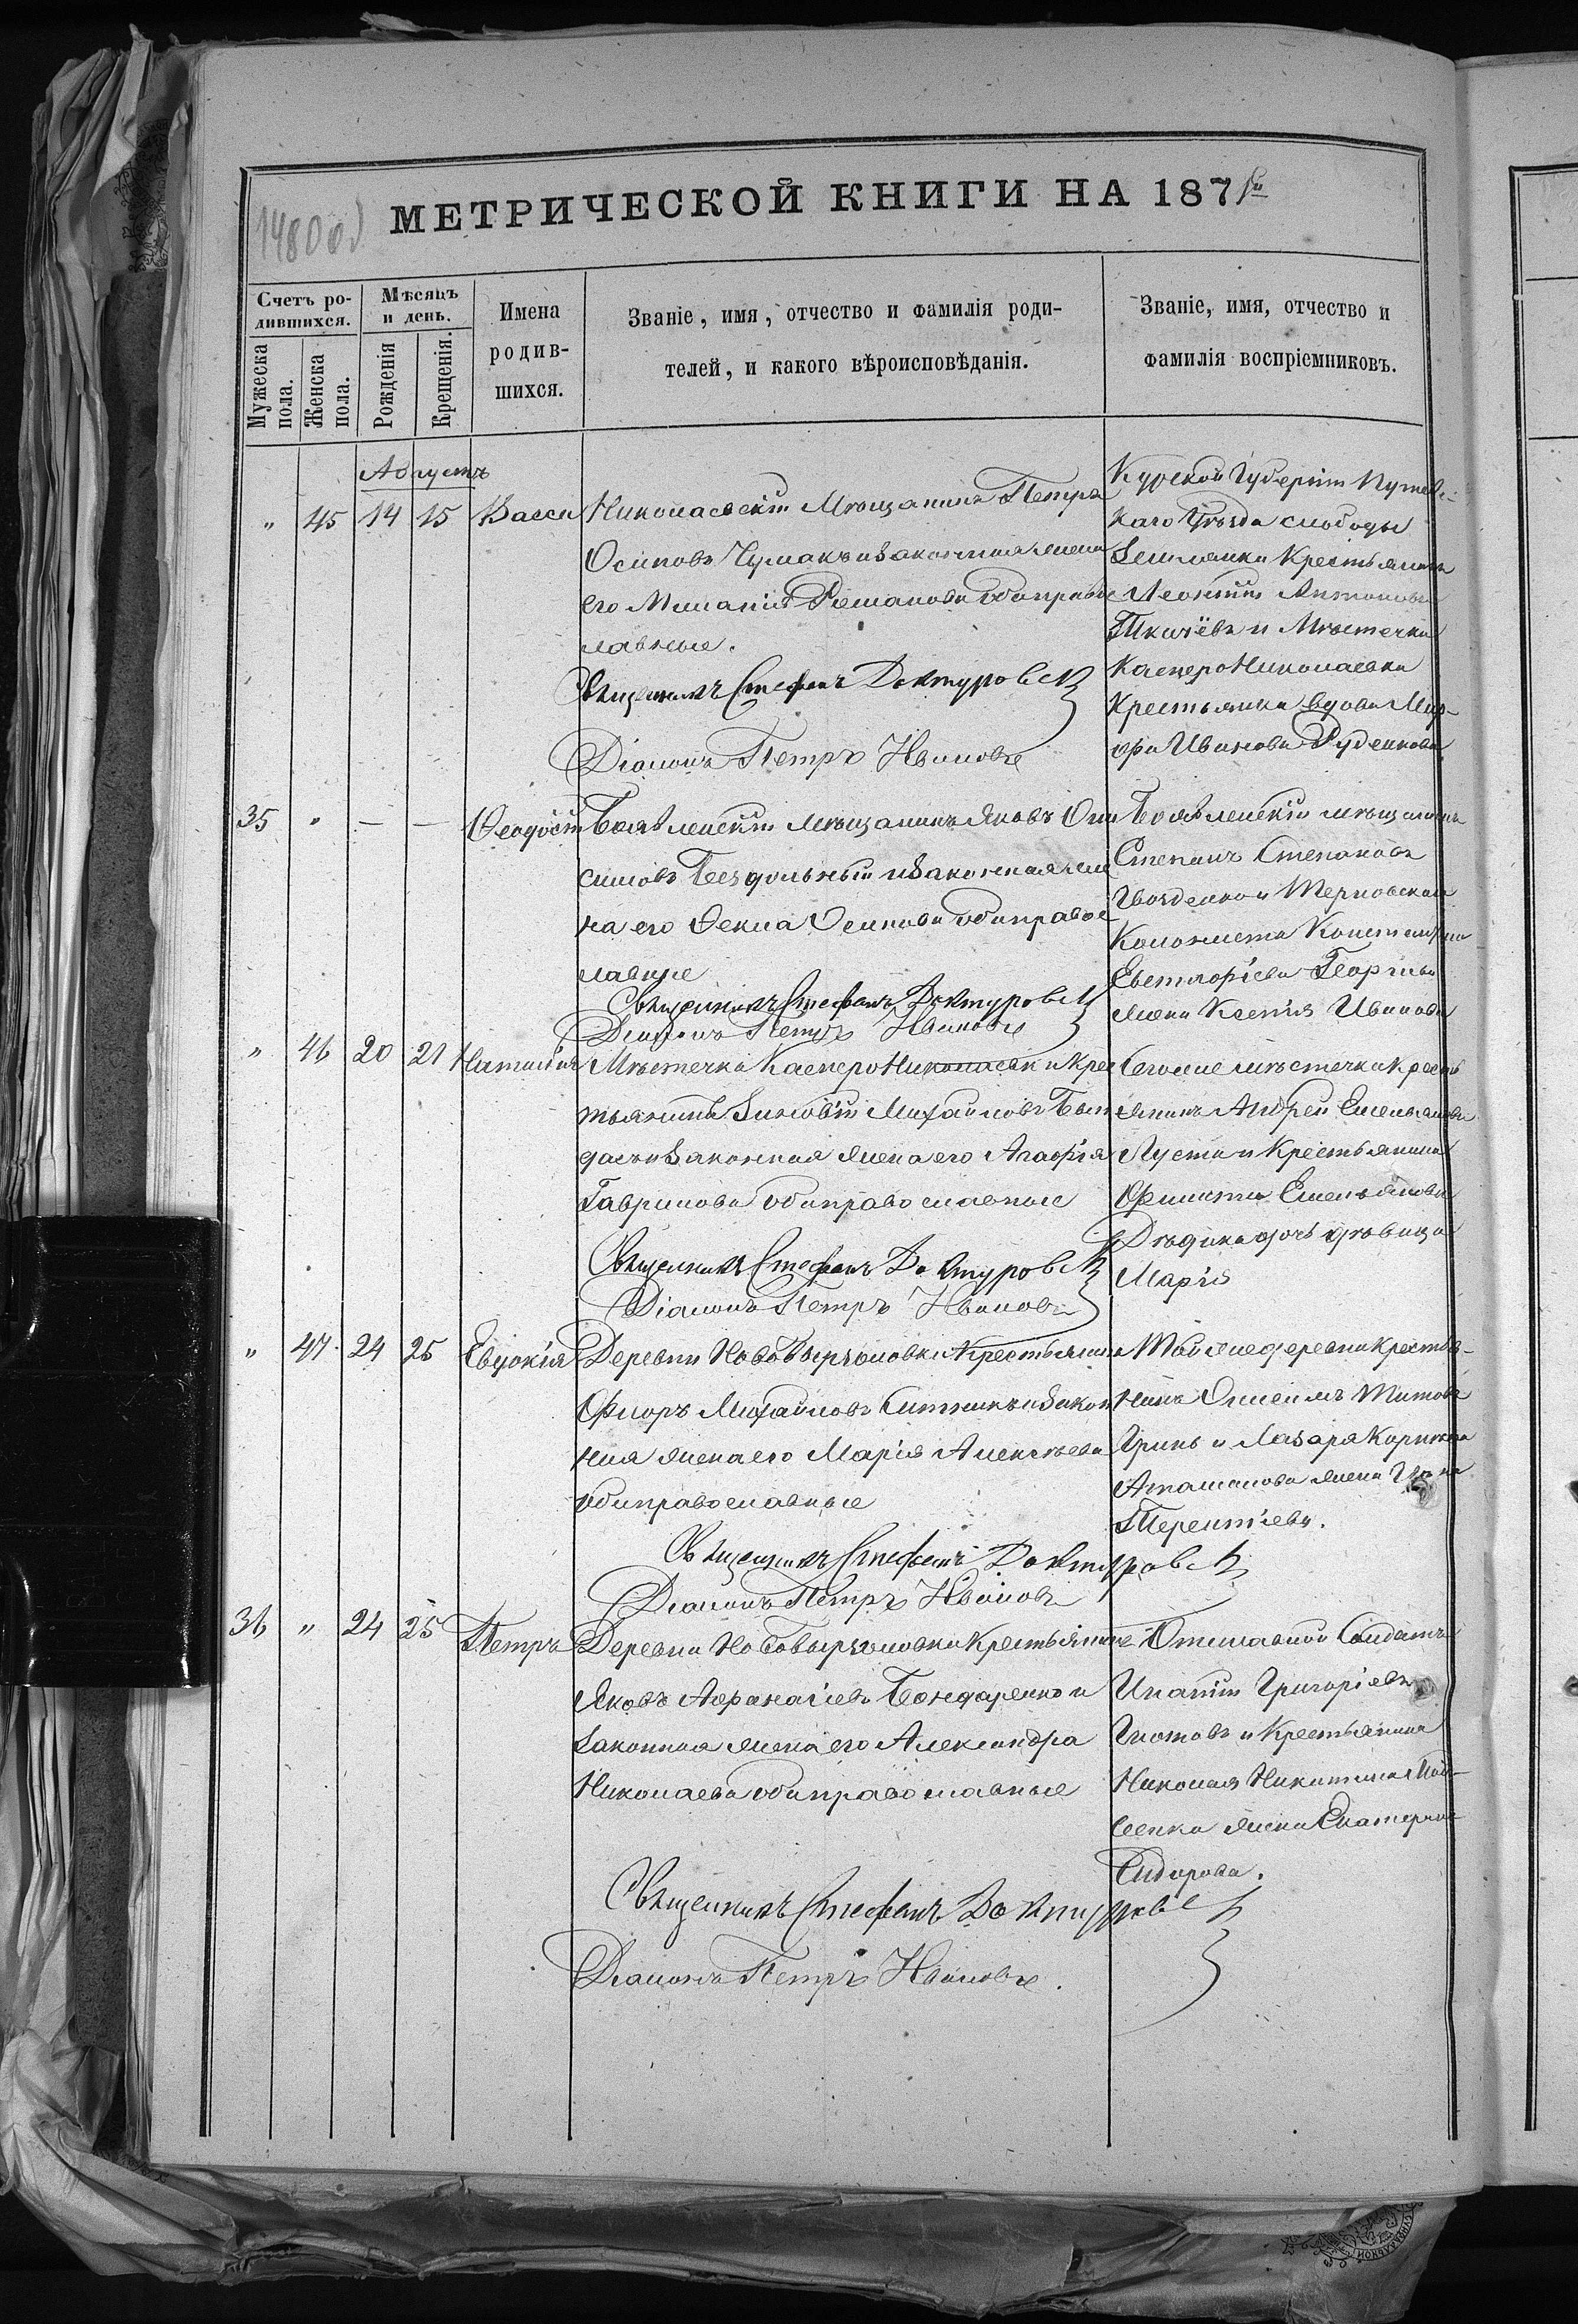 1480об
МЕТРИЧЕСКОЙ КНИГИ НА 187
Счетъ ро-
дившихся.
Мужеска
пола.
Женска
пола.
Мѣсяцъ
и день.
Рожденія
Крещенія.
Имена
родив-
шихся.
Званіе, имя, отчество и фамилія роди-
телей, и какого вѣроисповѣданія.
Званіе, имя, отчество и
фамилія воспріемниковъ.
Августъ
" 45 14 15 Васса
Николаевскій Мѣщанинъ Петръ
Осиповъ Чумакъ и законная жена
его Меланія Романова оба правос
лавные.
Священникъ Стефанъ Доктуровск
Діаконъ Петръ Ивановъ
Курской Губерніи Путивл-
каго Уѣзда слободы
Землянки Крестьянинъ
Леонтій Антоновъ
Ткачёвъ и Мѣстечка
Касперо Николаевки
Крестьянка вдова Мар-
фа Иванова Руденкова
35 " — — Феодосій
мѣщанинъ Яковъ Они
симовъ Бездольный и законная же
на его Фекла Осипова оба правос
лавные
Священникъ Стефанъ Доктуровск
Діаконъ Петръ Ивановъ
мѣщанинъ
Степанъ Степановъ
Гвозденко и Терновской
Колониста Константина
Евстафіева Георгіева
жена Ксенія Иванова
" 46 20 21 Наталія
Мѣстечка Касперо Николаевки Крес
тьянинъ Зиновій Михайловъ
и законная жена его Агафія
Гаврилова оба православные
Священникъ Стефанъ Доктуровск
Діаконъ Петръ Ивановъ
Сегоже мѣстечка Кресть
янинъ Андрей Емельяновъ
и Крестьянина
Филиппа Емельянова
дочь дѣвица
Марія
" 47 24 25 Евдокія
Деревни Крестьянинъ
Флоръ Михайловъ и закон
ная жена его Марія Алексѣева
оба православные
Священникъ Стефанъ Доктуровск
Діаконъ Петръ Ивановъ
Той же деревни Крестья-
нинъ Титовъ
Гринь и Лазаря
жена
Терентіева.
36 " 24 25 Петръ
Деревни Крестьянинъ
Яковъ Афанасіевъ Бондаренко и
законная жена его Александра
Николаева оба православные
Священникъ Стефанъ Доктуровск
Діаконъ Петръ Ивановъ.
Отставной Солдатъ
Ипатій Григоріевъ
и Крестьянина
Николая Никитина
жена Екатерина
Сидорова.